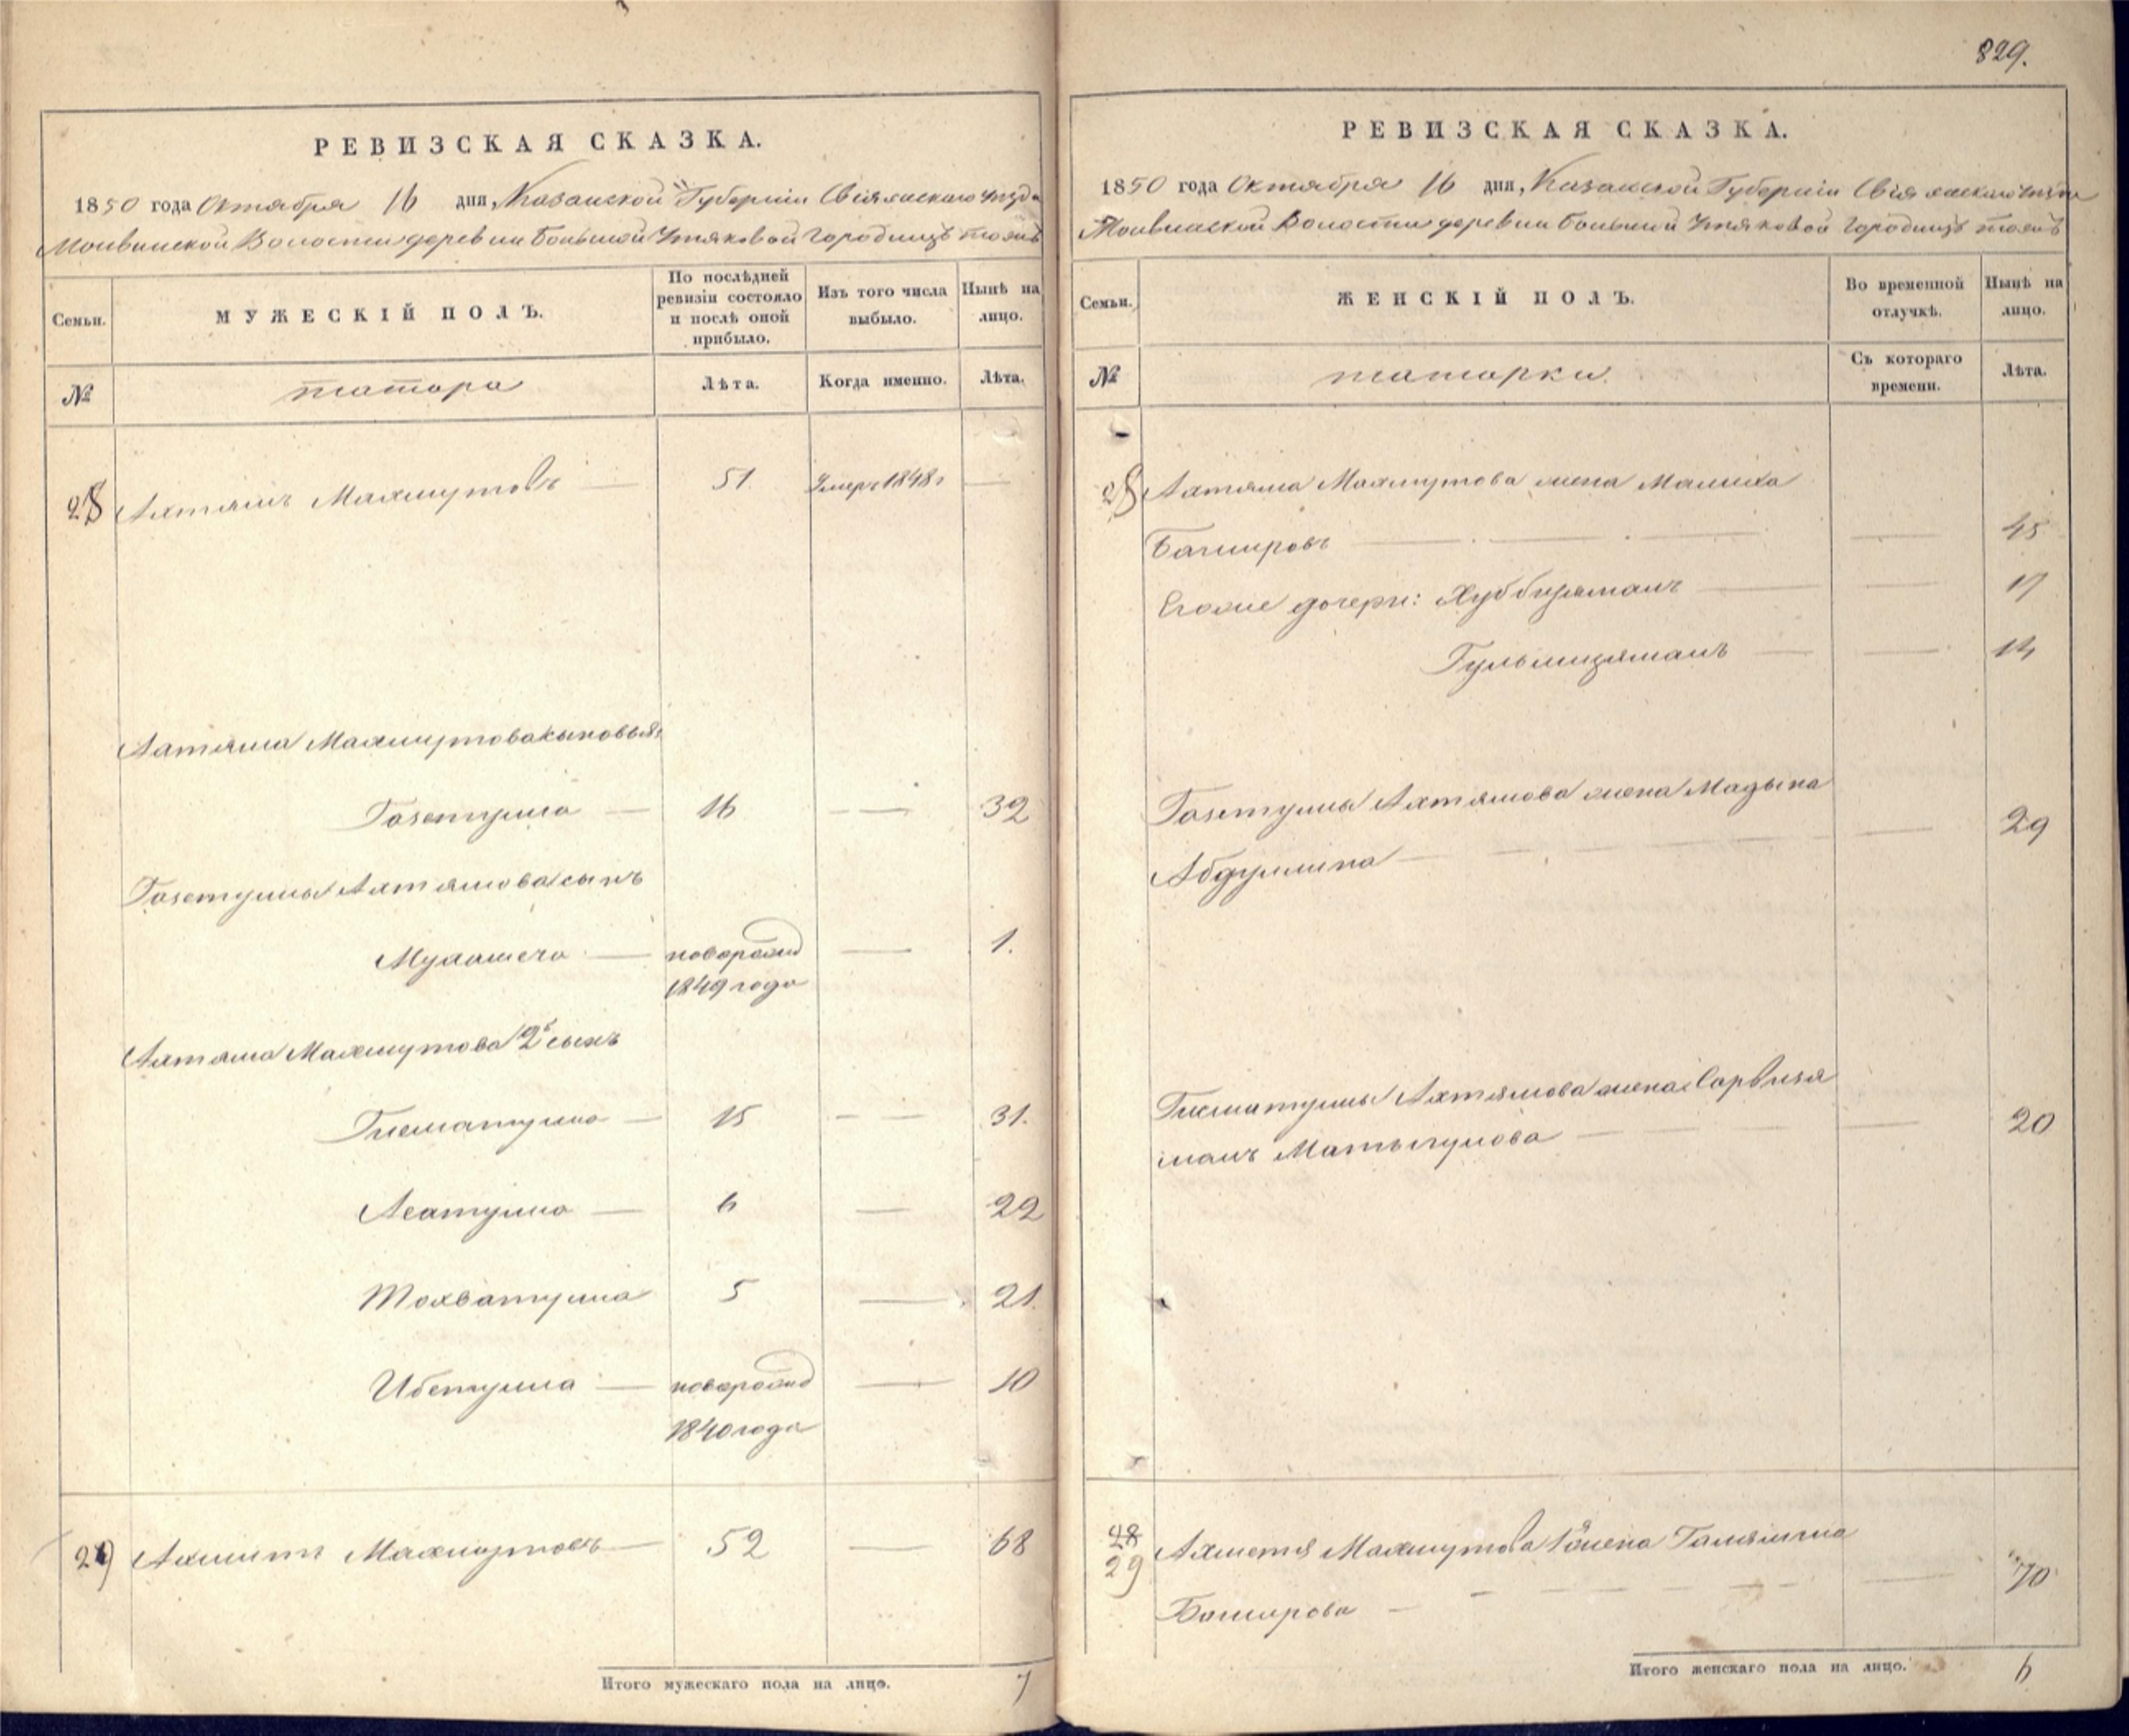 829.
РЕВИЗСКАЯ СКАЗКА.
1850 года Октября 16 дня, Казанской Губерніи Свіяжскаго уѣзда
Волости деревни Большой Утяковой Городищѣ тожъ
Семьи.
МУЖЕСКІЙ ПОЛЪ.
По послѣдней ревизіи состояло и послѣ оной прибыло.
Изъ того числа выбыло.
Нынѣ на лицо.
№
татара
Лѣта.
Когда именно.
Лѣта.
28 Ахтямъ Махмутовъ — 51. Умеръ 1848г —
Ахтяма Махмутова сыновья:
Газетулла — 16 — — 32
Газетуллы Ахтямова сынъ
— новорожд — 1.
1849 года
Ахтяма Махмутова 2й сынъ
Гисматулла — 15 — — 31.
Асатулла — 6 — 22
Мохватулла 5 — 21.
Ибетулла — новорожд — 10
1840 года
29 Ахметъ Махмутовъ — 52 — 68
Итого мужескаго пола на лицо. 7
РЕВИЗСКАЯ СКАЗКА.
1850 года Октября 16 дня, Казанской Губерніи Свіяжскаго уѣзда
Волости деревни Большой Утяковой Городищѣ тожъ
Семьи.
ЖЕНСКІЙ ПОЛЪ.
Во временной отлучкѣ.
Нынѣ на лицо.
№
татарки.
Съ котораго времени.
Лѣта.
28 Ахтяма Махмутова жена Малика
Башировъ — — — — 45
Егоже дочери: Хуббизяманъ — — 17
Гульмизяманъ — — 14
Газетуллы Ахтямова жена Мадына
Абдуллина — — — — 29
Гисматуллы Ахтямова жена Сарвизя
манъ — — — — 20
28
29 Ахметя Махмутова 1я жена
Баширова — — — — 70
Итого женскаго пола на лицо. 6